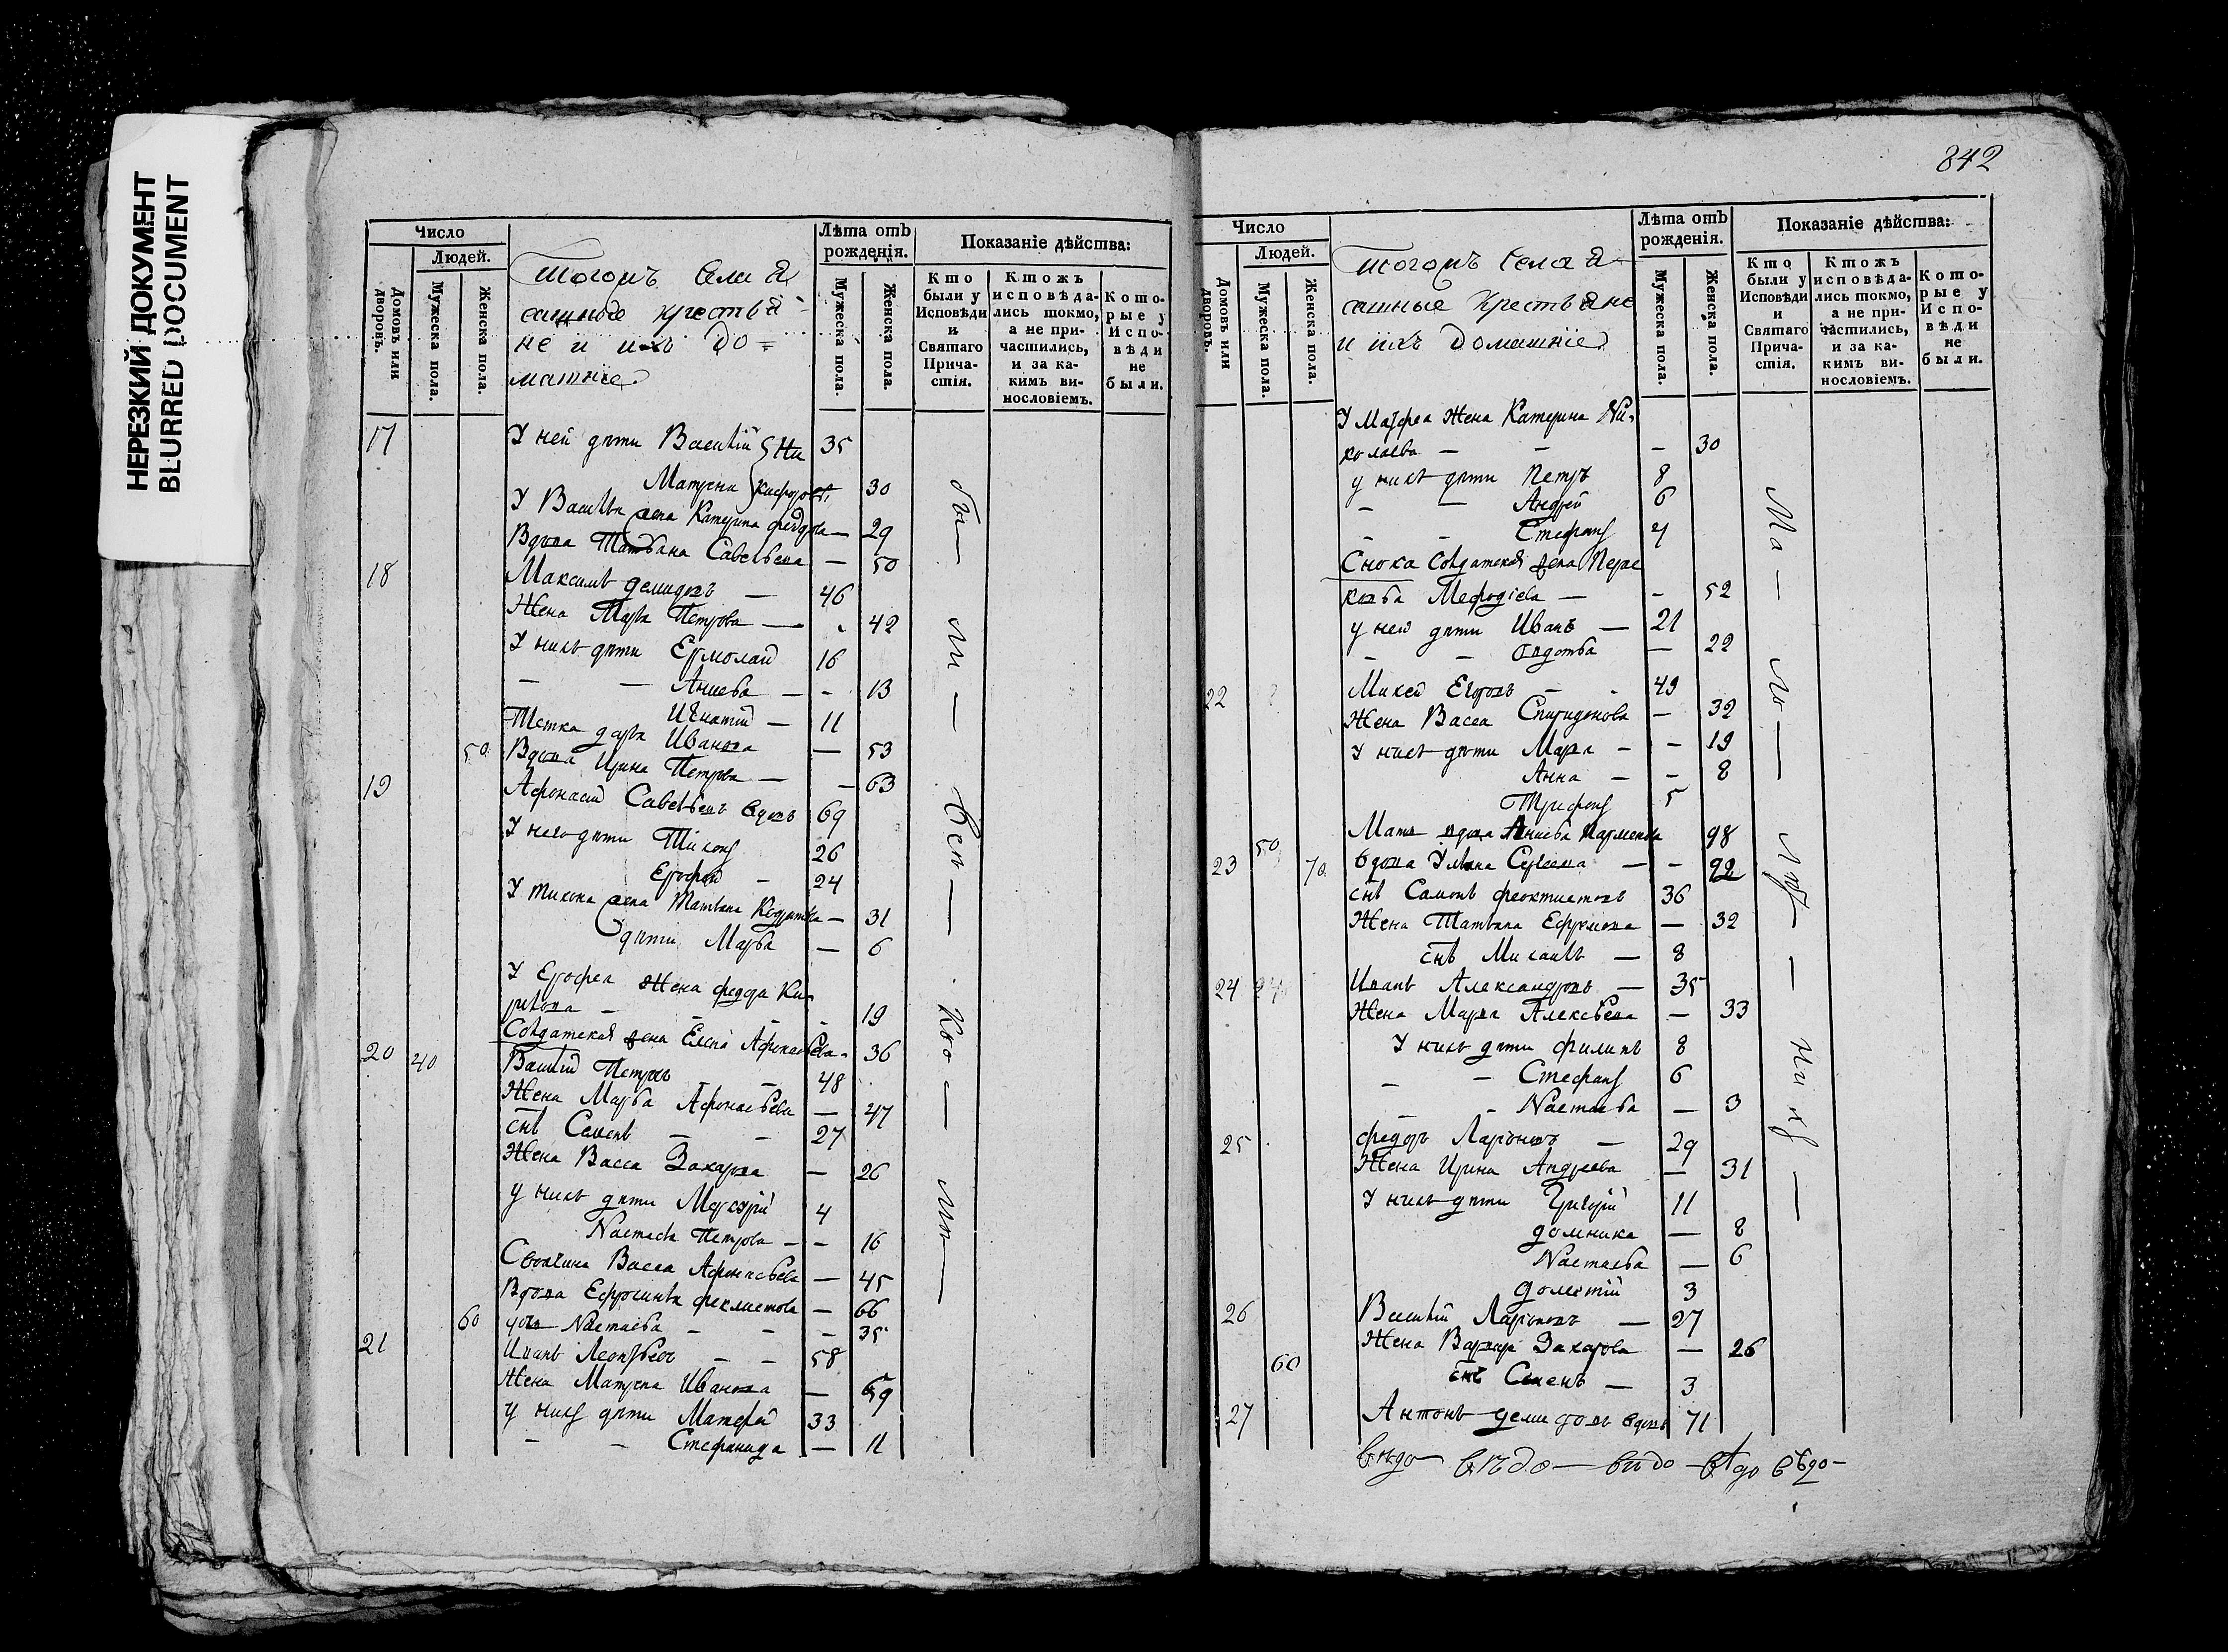 НЕРЕЗКИЙ ДОКУМЕНТ
BLURRED DOCUMENT
Число
Людей.
Домовъ или дворовъ.
Мужеска пола.
Женска пола.
тогожъ села я
сашные крестья-
не и ихъ до=
машніе
Лѣта отъ рожденія.
Мужеска пола.
Женска пола.
Показаніе дѣйства:
Кто были у Исповѣди и Святаго Прича-стія.
Ктожъ исповѣда-лись токмо, а не при-частились, и за ка-кимъ ви-нословіемъ.
Кото-рые у Испо-вѣди не были.
17 У ней дѣти Василій Ни 35
Матрена кифоровы 30
У Василья жена Катерина федорова — 29
Вдова Татьяна Савельева — 50
18 Максимъ демидовъ — 46
Жена Марья Петрова — 42
У нихъ дѣти Ермолай 16
— — Анисья — - 13
Игнатій — 11
Тетка дарья Иванова — 53
50 Вдова Ирина Петрова — — 63
19 Афонасій Савельевъ вдовъ 69
У него дѣти Тихонъ 26
Ерофей - 24
У тихона жена Татьяна Кодратьева — 31
дѣти Марья — 6
У Ерофея Жена федора Ки-
рилова - - - 19
Солдатская жена Елена Афонасьева - 36
20 40 Василій Петровъ - 48
Жена Марья Афонасьева — 47
снъ Семенъ — - 27
Жена Васса Захарова — 26
у нихъ дѣти Меркурій 4
Настасья Петрова — - 16
Своячина Васса Афонасьева — 45
Вдова Ефросинья феклистова — 66
60 дочь Настасья - - - 35
21 Иванъ Леонтьевъ - - 58
Жена Матрена Иванова — 59
у нихъ дѣти Матфей 33
- - Стефанида — 11
бы — ли — всѣ — Кто — ли —
842
Число
Людей.
Домовъ или дворовъ.
Мужеска пола.
Женска пола.
тогожъ села я
сашные крестьяне
и ихъ домашніе
Лѣта отъ рожденія.
Мужеска пола.
Женска пола.
Показаніе дѣйства:
Кто были у Исповѣди и Святаго Прича-стія.
Ктожъ исповѣда-лись токмо, а не при-частились, и за ка-кимъ ви-нословіемъ.
Кото-рые у Испо-вѣди не были.
У Матфея Жена Катерина Ни-
колаева — - - 30
у нихъ дѣти Петръ 8
- - Андрей 6
- - Стефанъ 4
Сноха Солдатская жена Парас
ковья Мефодіева — - 52
у ней дѣти Иванъ — 21
- - федотья — 22
22 Михей Егоровъ - - 49
Жена Васса Спиридонова — 32
У нихъ дѣти Марья - - 19
Анна - - 8
Трифонъ 5
50 Мать вдова Анисья Парменова 98
23 70 вдова Ульяна Сергеева — - 92
снъ Самонъ феоктистовъ 36
Жена Татьяна Ефремова — 32
снъ Михаилъ — 8
24 Иванъ Александровъ — 35
Жена Марья Алексѣева — 33
У нихъ дѣти филипъ 8
- - Стефанъ 6
- - Настасья — 3
25 федоръ Ларіоновъ — 29
Жена Ирина Андреева — 31
У нихъ дѣти Григорій 11
домника — 8
Настасья — 6
3
26 Василій Ларіоновъ — 27
Жена Варвара Захарова — 26
60 снъ Семенъ — 3
27 Антонъ демидовъ вдовъ 71
Ма — ло — лѣт — ни хъ —